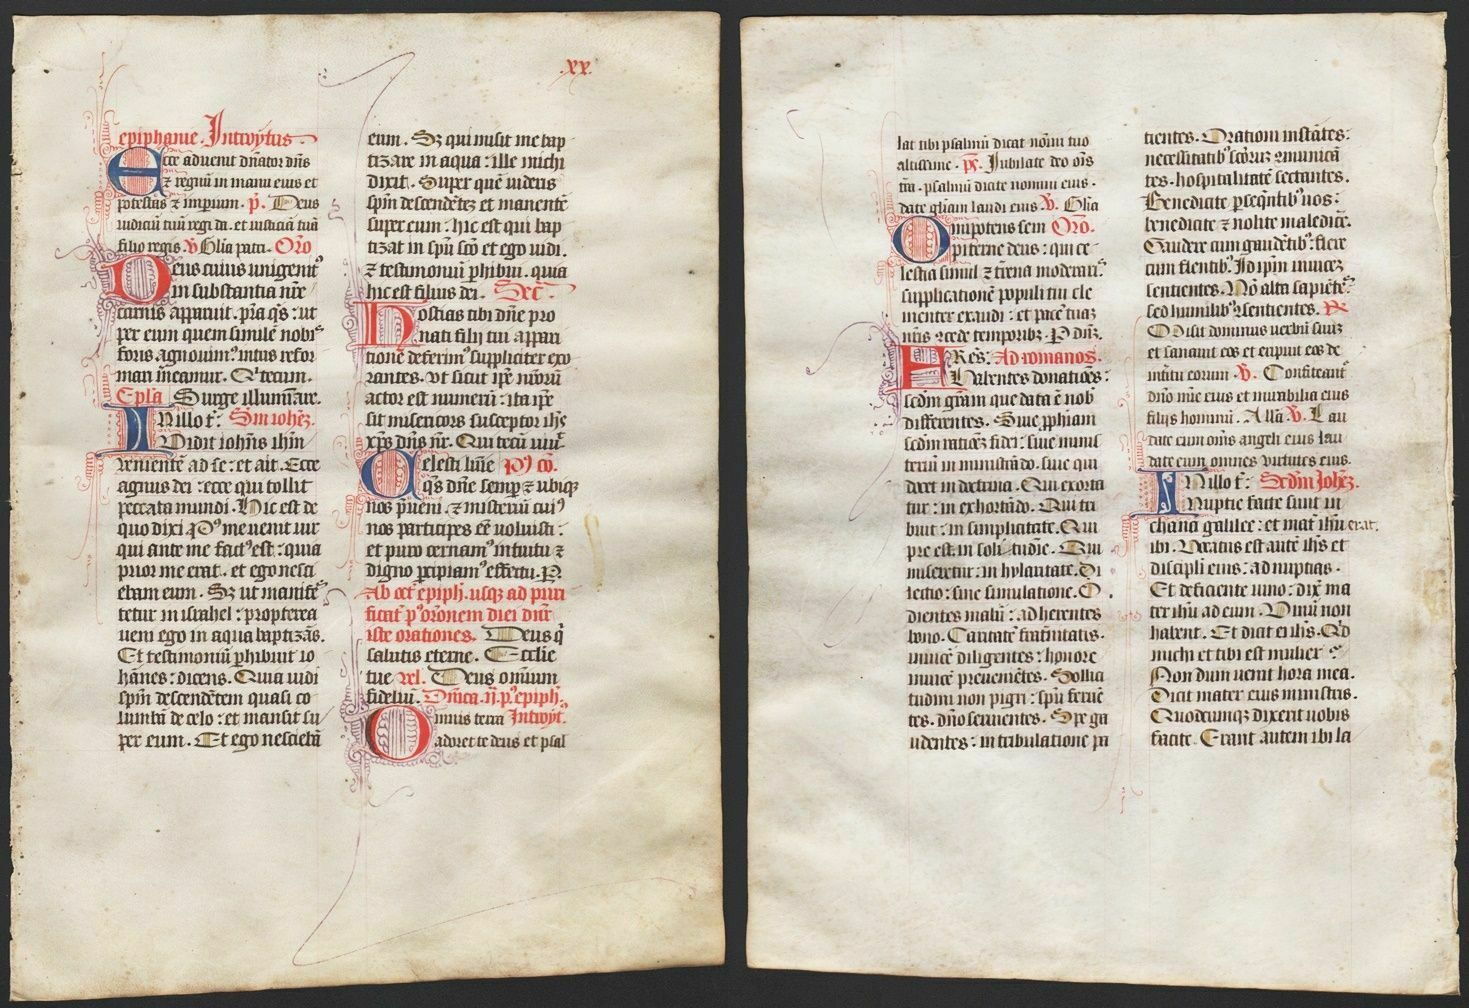 .xx.
epiphanie. Introẏtus
Ecce aduenit dn̄ator dn̄s
⁊ regnū in manu eius et
potestas ⁊ imꝑium. p̄. Deus
iudiciū tuū regi da. et iusticiā tuā
filio regis. V̄ Gl̄ia patri. Oro
Deus cuius unigenitꝰ
in substantia nr̄e
carnis apparuit. pr̄a qs̄: ut
per eum quem similē nobis
foris agnouimꝰ: intus refor
mari m̄eamur. Q̄ tecum.
Epl̄a Surge illumīare.
In illo t̄. Sm̄ ioh̄ez.
Vidit ioh̄es ih̄m
venientē ad se: et ait. Ecce
agnus dei: ecce qui tollit
peccata mundi. Hic est de
quo dixi. Pꝰ me venit vir
qui ante me factꝰ est: quia
prior me erat. et ego nesci
ebam eum. Sꝫ ut manifes
tetur in israhel: propterea
ueni ego in aqua baptizās.
Et testimoniū ꝑhibuit io
hānes: dicens. Quia uidi
spm̄ descendētem quasi co
lumbā de celo: et mansit su
per eum. Et ego nesciebā
eum. Sꝫ qui misit me bap
tizare in aqua: ille michi
dixit. Super quē uideris
spm̄ descendētez et manentē
super eum: hic est qui bap
tizat in spū scō et ego uidi.
⁊ testimoniū ꝑhibui. quia
hic est filius dei. Sec̄.
Hostias tibi dn̄e pro
nati filij tui appari
tionē deferimꝰ suppliciter exo
rantes. vt sicut ip̄e nr̄orū
actor est munerū: ita ip̄e
sit misericors susceptor ih̄s
xp̄s dn̄s nr̄. Qui tecū uiu̅.
Celesti lūīe Pꝰ cō.
qs̄ dn̄e semꝑ ⁊ ubiqꝫ
nos p̄ueni. ⁊ misteriū cuiꝰ
nos participes eē voluisti:
et puro cernamꝰ intuitu ⁊
digno ꝑcipiamꝰ effectu. P.
Ab oct̄ epiph. usqꝫ ad puri
ficat̄ pꝰ or̄onem diei dicūt̄
iste orationes. Deus q̄
salutis eterne. Ecclie
tue vel. Deus omnium
fideliū. Dn̄ica .ij. pꝰ epiph.
Omnis terra Introyt̄.
adoret te deus et psal
lat tibi psalmū dicat noīni tuo
altissime. ps̄. Jubilate deo oīs
tr̄a. psalmū dicite nomini eius.
date gl̄iam laudi eius. V̄. Gl̄ia
Omīpotens sem Oro.
piterne deus: qui ce
lestia simul ⁊ tr̄ena moderaris
supplicationē populi tui cle
menter exaudi: et pacē tuaꝫ
nr̄is ꝯcede temporibꝫ. P dn̄ꝫ.
Fres̄: Ad romanos.
Habentes donatiōes:
scd̄m gr̄am que data ē nob̄
differentes. Siue ꝓphiam
scd̄m ratiōeꝫ fidei: siue minis
teriū in ministrādo. siue qui
docet in doctrina. Qui exorta
tur: in exhortādo. Qui tri
buit: in simplicitate. Qui
pre est. in solicitudīe. Qui
miseretur: in hylaritate. Di
lectio: sine simulatione. O
dientes malū: adherentes
bono. Caritatē frat̄nitatis.
inuicē diligentes: honore
inuicē preuenietēs. Sollici
tudini non pigri: spū feruē
tes. dn̄o seruientes. Spe ga
udentes: in tribulatione pa
tientes. Orationi instātes:
necessitatibꝰ scōrum ꝯmunicā
tes. hospitalitatē sectantes.
Benedicite ꝑseqn̄tibꝰ uos:
benedicite ⁊ nolite maledicē.
Gaudere cum gaudētibꝰ: flere
cum flentibꝰ. Id ip̄m inuiceꝫ
sentientes. Nō alta sapiētes:
sed humilibꝰ ꝯsentientes. R̄
Misit dominus verbū suuꝫ
et sanauit eos et eripuit eos de
int̄itu eorum V̄. Confiteantꝰ
dn̄o mīe eius et mirabilia eius
filijs hominū. Allā. V̄. Lau
date eum om̄s angeli eius lau
date eum omnes uirtutes eius.
In illo t̄: Scd̄m Joh̄eꝫ.
Nuptie facte sunt in
chana galilee: et mat̄ ih̄u erat.
ibi. Vocatus est autē ih̄s et
discipli eius: ad nuptias.
Et deficiente uino: dix̄ ma
ter ih̄u ad eum. Vinū non
habent. Et dicit ei ih̄s. Qd̄
michi et tibi est mulier?
Non dum venit hora mea.
Dicit mater eius ministris.
Quodcumqꝫ dixerit uobis
facite. Erant autem ibi la